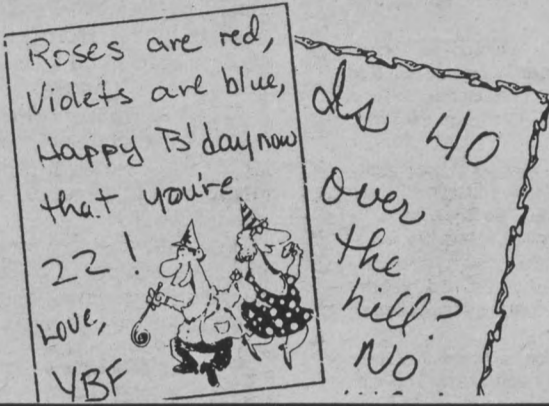 Roses are red,
Violets are blue,
Happy B'day now
that you're
22!
Love,
YBF
Is 40
over
the
hill?
No